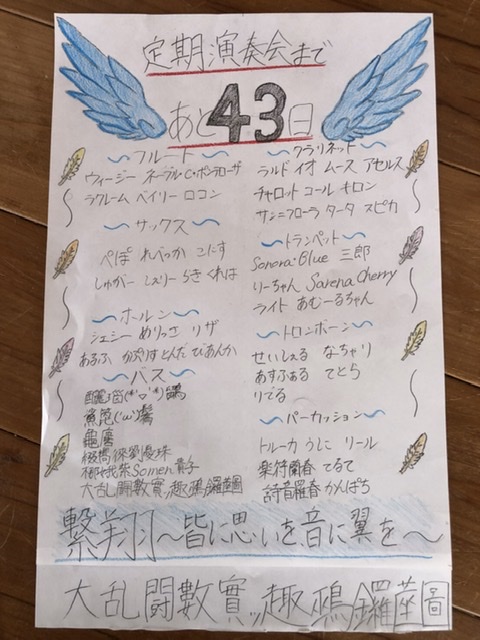 定期演奏会まで
あと43日
〜フルート〜
ウィージー ネーブル・C・ポンデローザ
ラクレーム ベイリー ロコン
〜サックス〜
ぺぽ れべっか こにす
しゅがー しぇりー らき くれは
〜ホルン〜
ジェシー めりっさ リザ
あるふ かぷりすとんだ びあんか
〜バス〜
魚
龜
Somen 貴子
大乱闘數實ッ趣鴉鑼蓙圖
〜クラリネット〜
ラルド イオ ムース アセルス
チャロット コール キロン
サンニフローラ タータ スピカ
〜トランペット〜
Sonora・Blue 三郎
りーちゃん Sarena Cherry
ライト あむーるちゃん
〜トロンボーン〜
せいしぇる なちゃり
あすふぁる てとら
りでる
〜パーカッション〜
トルーカ うに リール
楽符蘭春 てるて
詩音羅春 かんぱち
繋翔〜皆に思いを音に翼を〜
大乱闘數實ッ趣鴉鑼蓙圖